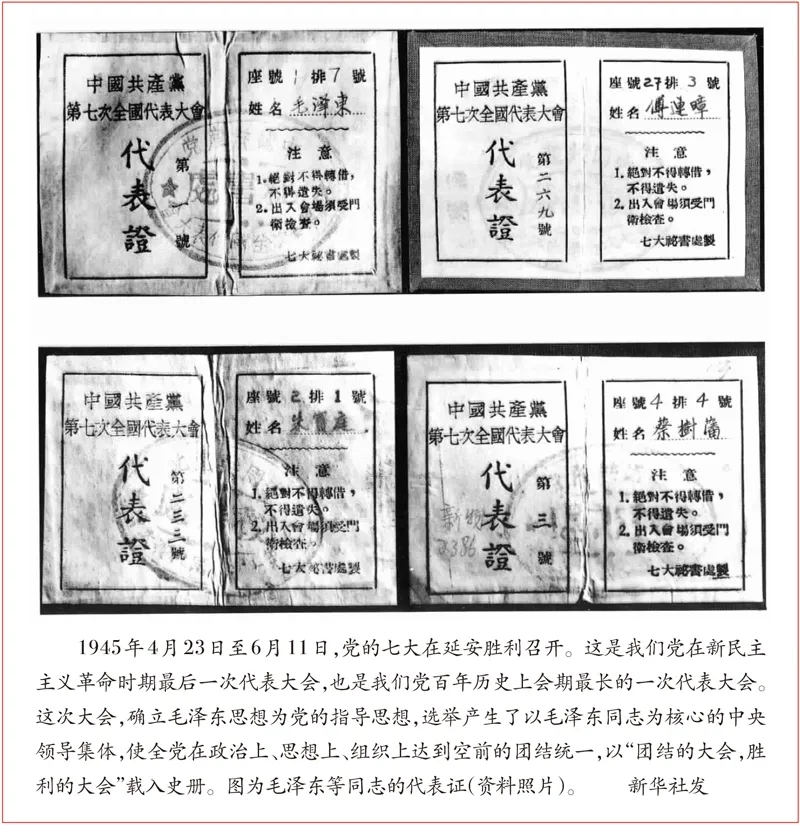 中國共產黨
第七次全國代表大會
代表證
第一號
座號1排7號
姓名 毛泽東
注意
1.絕對不得轉借，
不得遺失。
2.出入會場須受門
衛檢查。
七大祕書處製
中國共產黨
第七次全國代表大會
代表證
第二六九號
座號27排3號
姓名 傅連暲
注意
1.絕對不得轉借，
不得遺失。
2.出入會場須受門
衛檢查。
七大祕書處製
中國共產黨
第七次全國代表大會
代表證
第二三三號
座號2排1號
姓名 朱寶庭
注意
1.絕對不得轉借，
不得遺失。
2.出入會場須受門
衛檢查。
七大祕書處製
中國共產黨
第七次全國代表大會
代表證
第三號
座號4排4號
姓名 蔡樹藩
注意
1.絕對不得轉借，
不得遺失。
2.出入會場須受門
衛檢查。
七大祕書處製
1945年4月23日至6月11日，党的七大在延安胜利召开。这是我们党在新民主
主义革命时期最后一次代表大会，也是我们党百年历史上会期最长的一次代表大会。
这次大会，确立毛泽东思想为党的指导思想，选举产生了以毛泽东同志为核心的中央
领导集体，使全党在政治上、思想上、组织上达到空前的团结统一，以“团结的大会，胜
利的大会”载入史册。图为毛泽东等同志的代表证(资料照片)。 新华社发